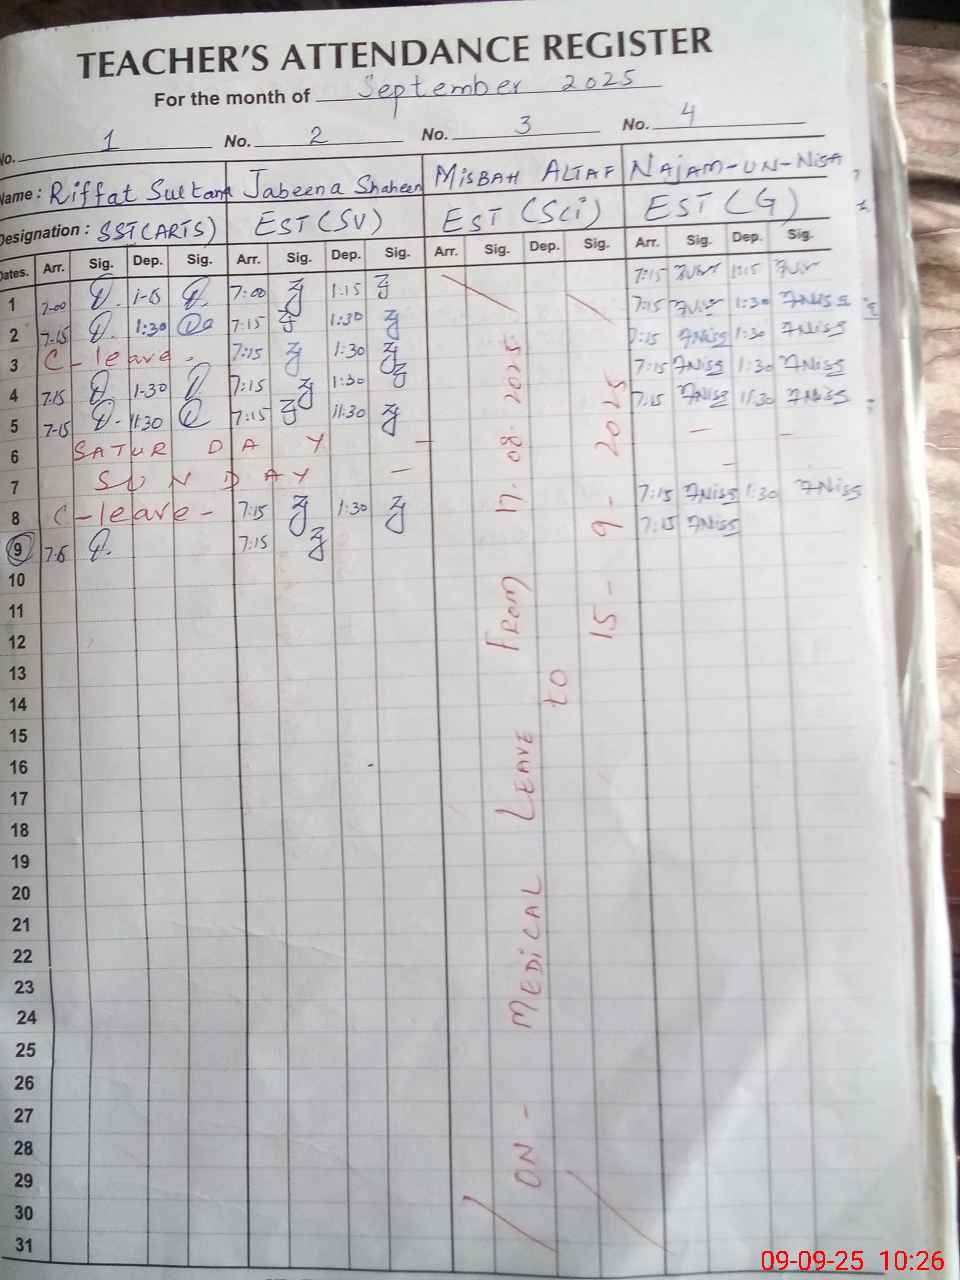 TEACHER'S ATTENDANCE REGISTER
For the month of September 2025
No. 1 No. 2 No. 3 No. 4
Name: Riffat Sultana Jabeena Shaheen MISBAH ALTAF NAJAM-UN-NISA
Designation: SST(ARTS) EST(SV) EST (Sci) EST (G)
Dates. Arr. Sig. Dep. Sig. Arr. Sig. Dep. Sig. Arr. Sig. Dep. Sig. Arr. Sig. Dep. Sig.
1 7-00 7:00 1:15 7:15
2 7-15 1:30 7:15 1:30 7:15 1:30
3 C-leave- 7:15 1:30 7:15 1:30
4 7-15 1-30 7:15 1:30 7:15 1:30
5 7-15 11:30 7:15 11:30 7:15 11:30
6 SATURDAY
7 SUNDAY
8 C-leave- 7:15 1:30 7:15 1:30
9 7:15 7:15
10
11
12
13
14
15
16
17
18
19
20
21
22
23
24
25
26
27
28
29
30
31
ON - MEDICAL LEAVE FROM 17.08.2025
to
15-9-2025
09-09-25 10:26